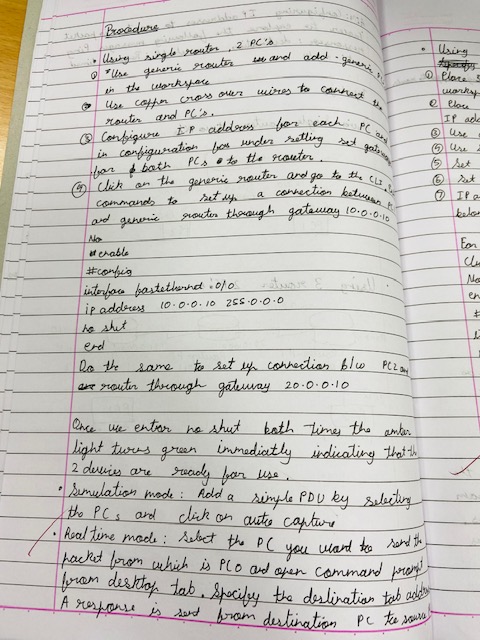 Procedure
• Using single router, 2 PC's
① *Use generic router and add generic
in the workspace
② Use copper cross over wires to connect the
router and PC's.
③ Configure IP address for each PC and
in configuration under setting set
for both PCs to the router.
④ Click on the generic router and go to the CLI
commands to set up a connection between
and generic router through gateway 10.0.0.10
No
#enable
#config
interface fastethernet 0/0
ip address 10.0.0.10 255.0.0.0
no shut
end
Do the same to set up connection b/w PC2 and
router through gateway 20.0.0.10
Once we enter no shut both times the amber
light turns green immediatly indicating that the
2 devices are ready for use.
• Simulation mode: Add a simple PDU by selecting
the PCs and click on auto capture
• Real time mode: Select the PC you want to send the
packet from which is PC0 and open Command prompt
from desktop tab. Specify the destination
A response is send from destination PC to source
• Using
① Place
② Place
IP
③ Use
④ Use
⑤ Set
⑥ Set
⑦ IP
below
For